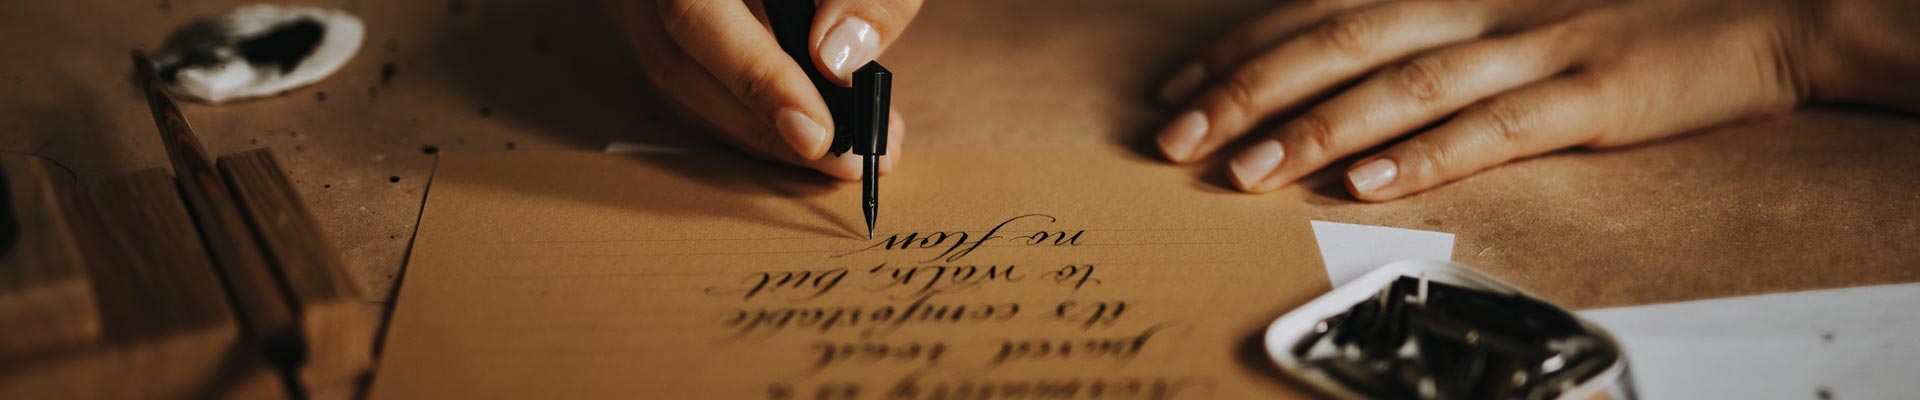 Normality is a
paved road
it's comfortable
to walk, but
no flow